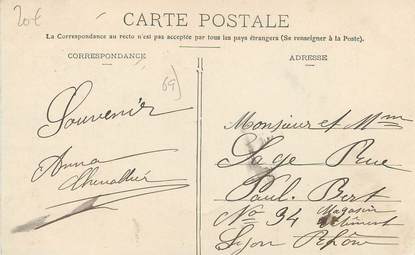 20€
CARTE POSTALE
La Correspondance au recto n'est pas acceptée par tous les pays étrangers (Se renseigner à la Poste).
CORRESPONDANCE
ADRESSE
69)
Souvenir
Anna
Chevallier
Monsieur et Mm
Sage Rue
Paul. Bert
No 34 Magasin
Lyon Rhône